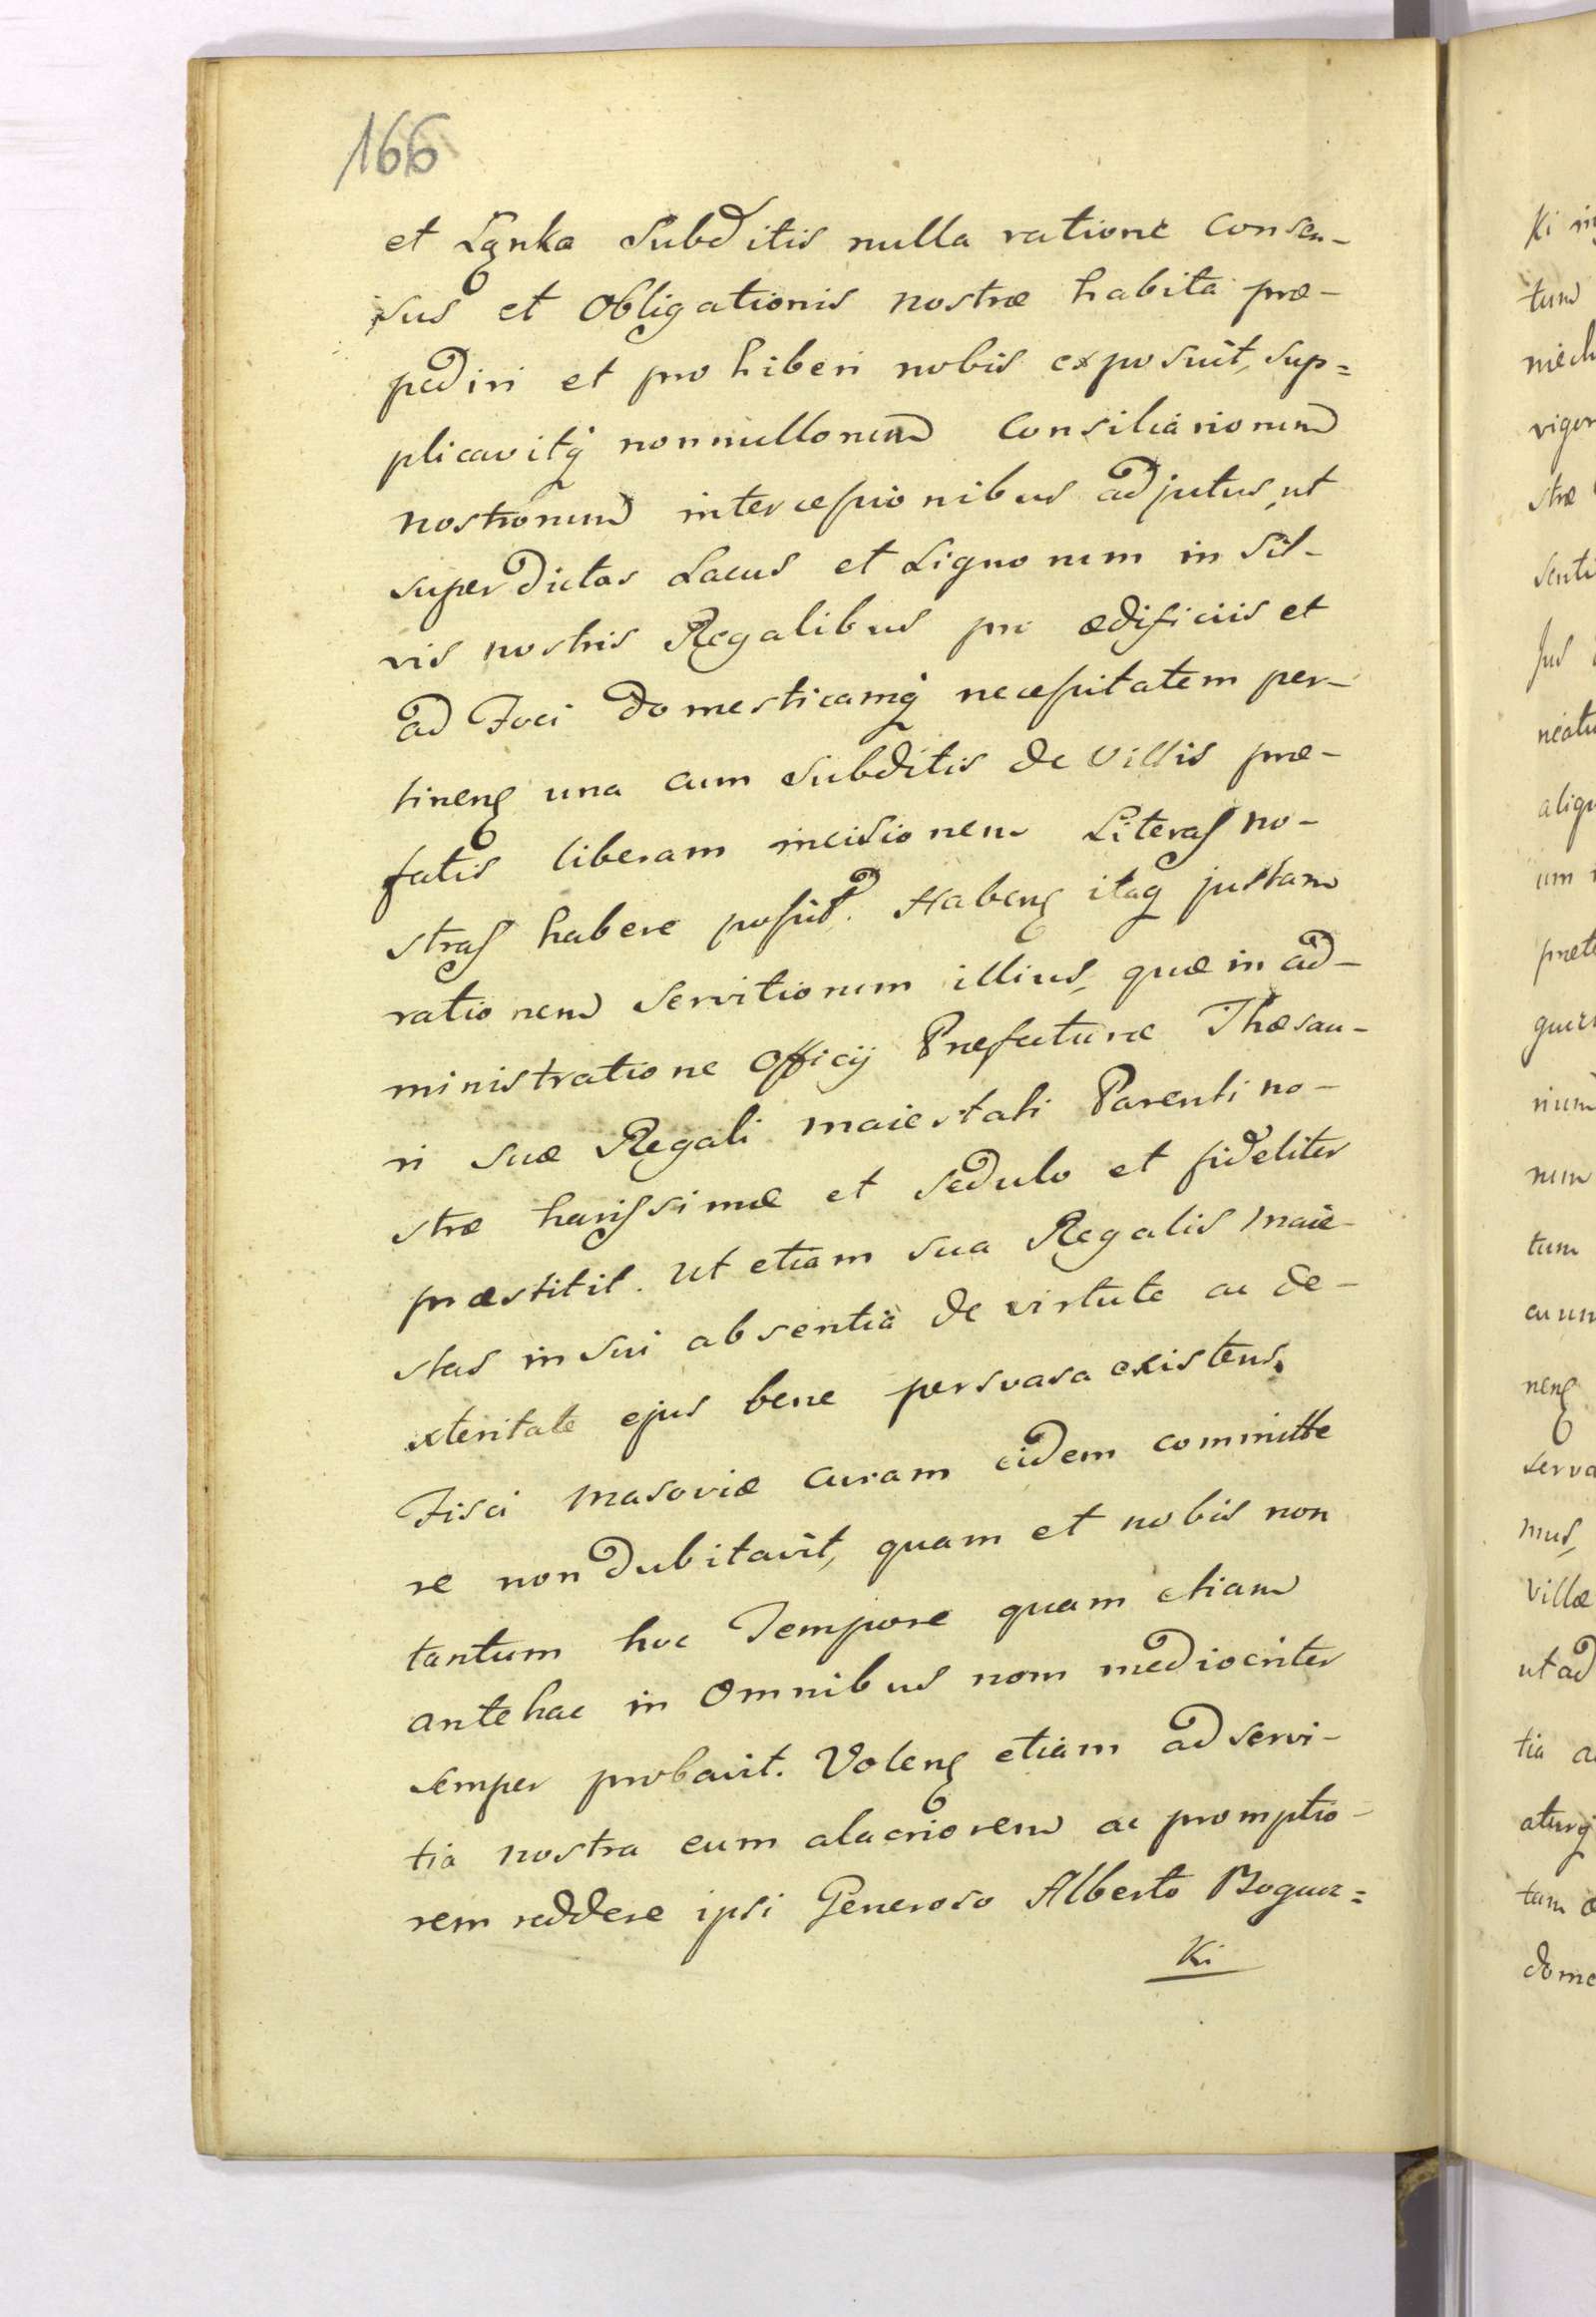 166
et Lęnka Subditis nulla ratione consen-
sus et Obligationis nostræ habita præ-
pediri et prohiberi nobis exposuit, sup=
plicavitq nonnullorum Consiliariorum
nostrorum intercessionibus adjutus, ut
super dictos Lacus et Lignorum in Sil-
vis nostris Regalibus pro ædificiis et
ad Foci domesticamq necessitatem per-
tinens una cum Subditis de Villis præ-
fatis liberam incisionem Literas no-
stras habere possit. Habens itaq justam
rationem Servitiorum illius, quæ in ad-
ministratione Officij Præfecturæ Thesau-
ri suæ Regali maiestati Parenti no-
stræ harissimæ et sedulo et fideliter
præstitit. Ut etiam sua Regalis maie-
stas in Sui absentia de virtute ac de-
xteritate ejus bene persvasa existens
Fisci Masoviæ curam eidem committe
re non dubitavit, quam et nobis non
tantum hoc Tempore quam etiam
antehac in Omnibus nom mediocriter
semper probavit. Volens etiam ad servi-
tia nostra eum alacriorem ac promptio-
rem reddere ipsi Generoso Alberto
Ki
Ki
tum
vigor
stræ
Senti
Jus
aliqu
um
nium
num
tum
nens
serva
mus,
Villæ
ut ad
tia
aturq
tam
dome